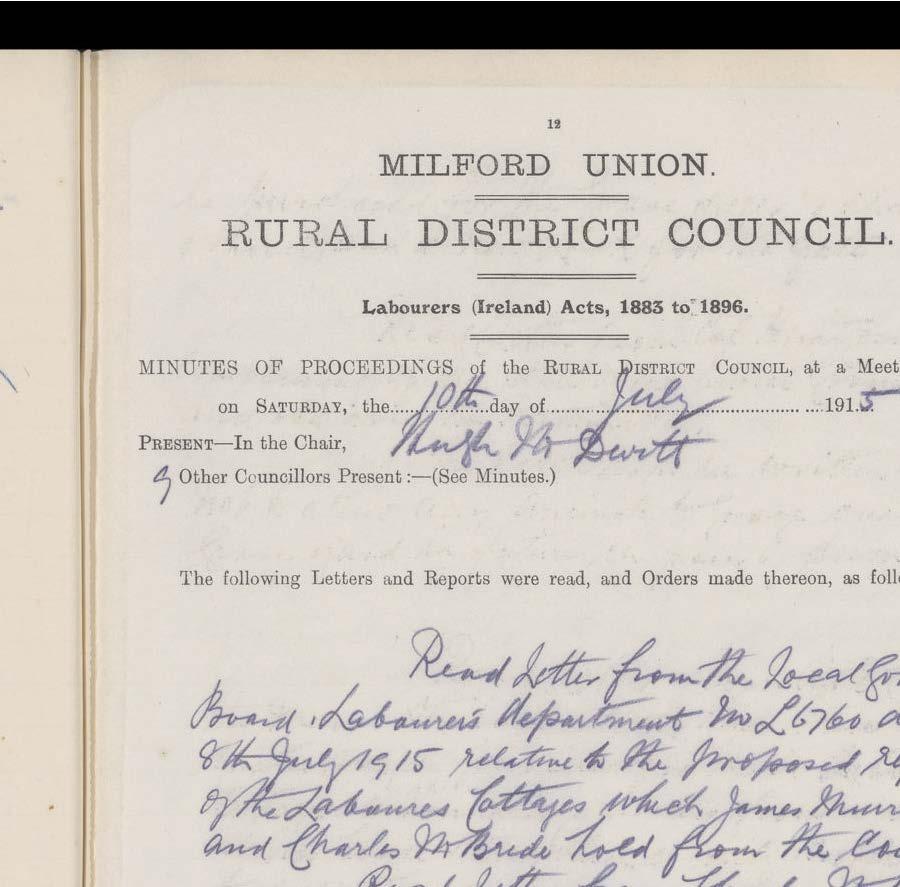 12
MILFORD UNION.
RURAL DISTRICT COUNCIL.
Labourers (Ireland) Acts, 1883 to 1896.
MINUTES OF PROCEEDINGS of the RURAL DISTRICT COUNCIL, at a Meet
on SATURDAY, the 10th day of July 1915
PRESENT—In the Chair, Hugh McDevitt
9 Other Councillors Present:—(See Minutes.)
The following Letters and Reports were read, and Orders made thereon, as follo
Read Letter from the Local Gov
Board, Labourers department No L6760 d
8th July 1915 relative to the proposed re
of the Laboures Cottages which James Murr
and Charles McBride hold from the Cou
Read Letter from